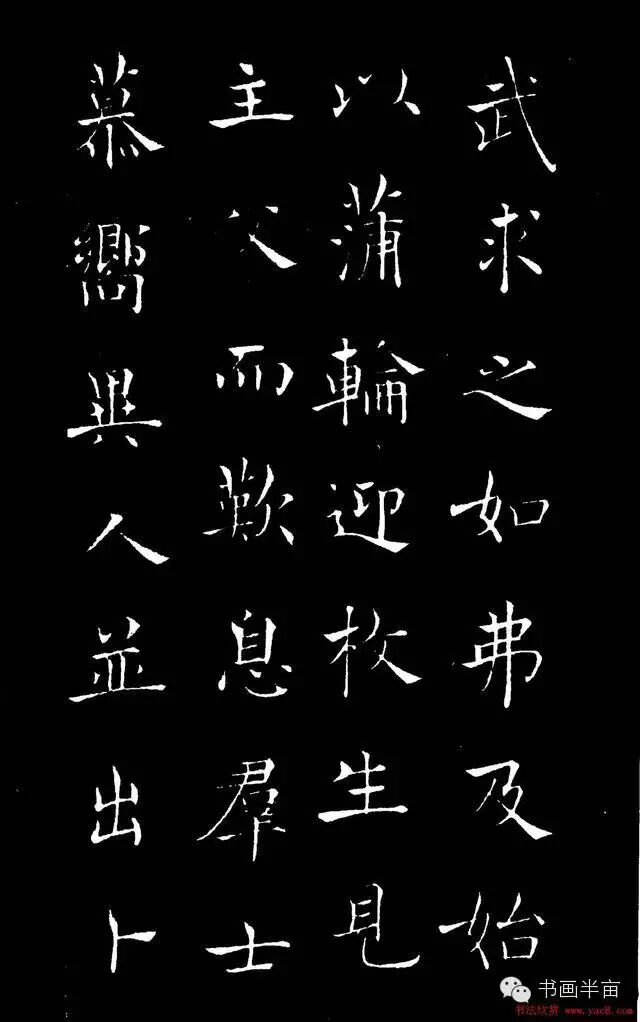 武求之如弗及始
以蒲輪迎枚生見
主父而歎息羣士
慕嚮異人並出卜
书画半亩
书法欣赏 www.yac8.com